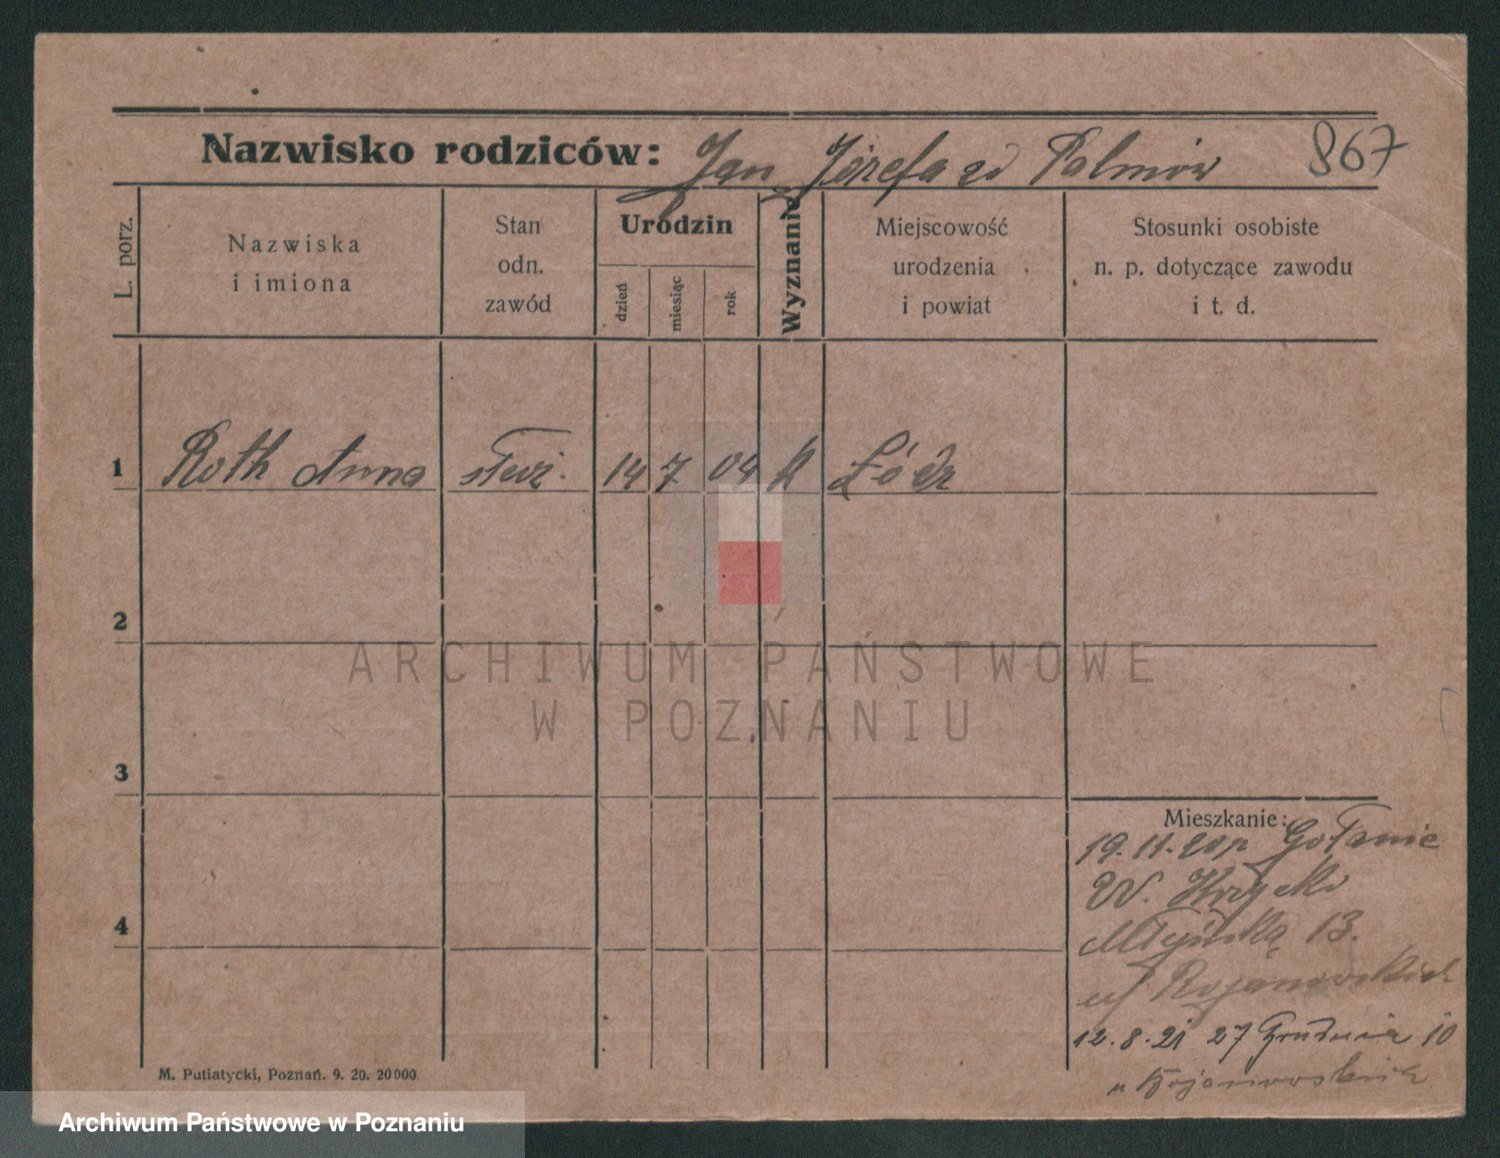 Nazwisko rodziców: Jan, Józefa zd Palmów 867
L. porz.
Nazwiska
i imiona
Stan
odn.
zawód
Urodzin
dzień
miesiąc
rok
Wyznanie
Miejscowość
urodzenia
i powiat
Stosunki osobiste
n. p. dotyczące zawodu
i t. d.
1 Roth Anna służ. 14 7 04 k Łódz
2
3
4
Mieszkanie:
19.11.20 p Gołanic
W. Krzycki
Młyńska 13.
u Bojanowskich
12.8.21 27 Grudnia 10
u Bojanowskich
M. Putiatycki, Poznań. 9. 20. 20000
ARCHIWUM PAŃSTWOWE
W POZNANIU
Archiwum Państwowe w Poznaniu